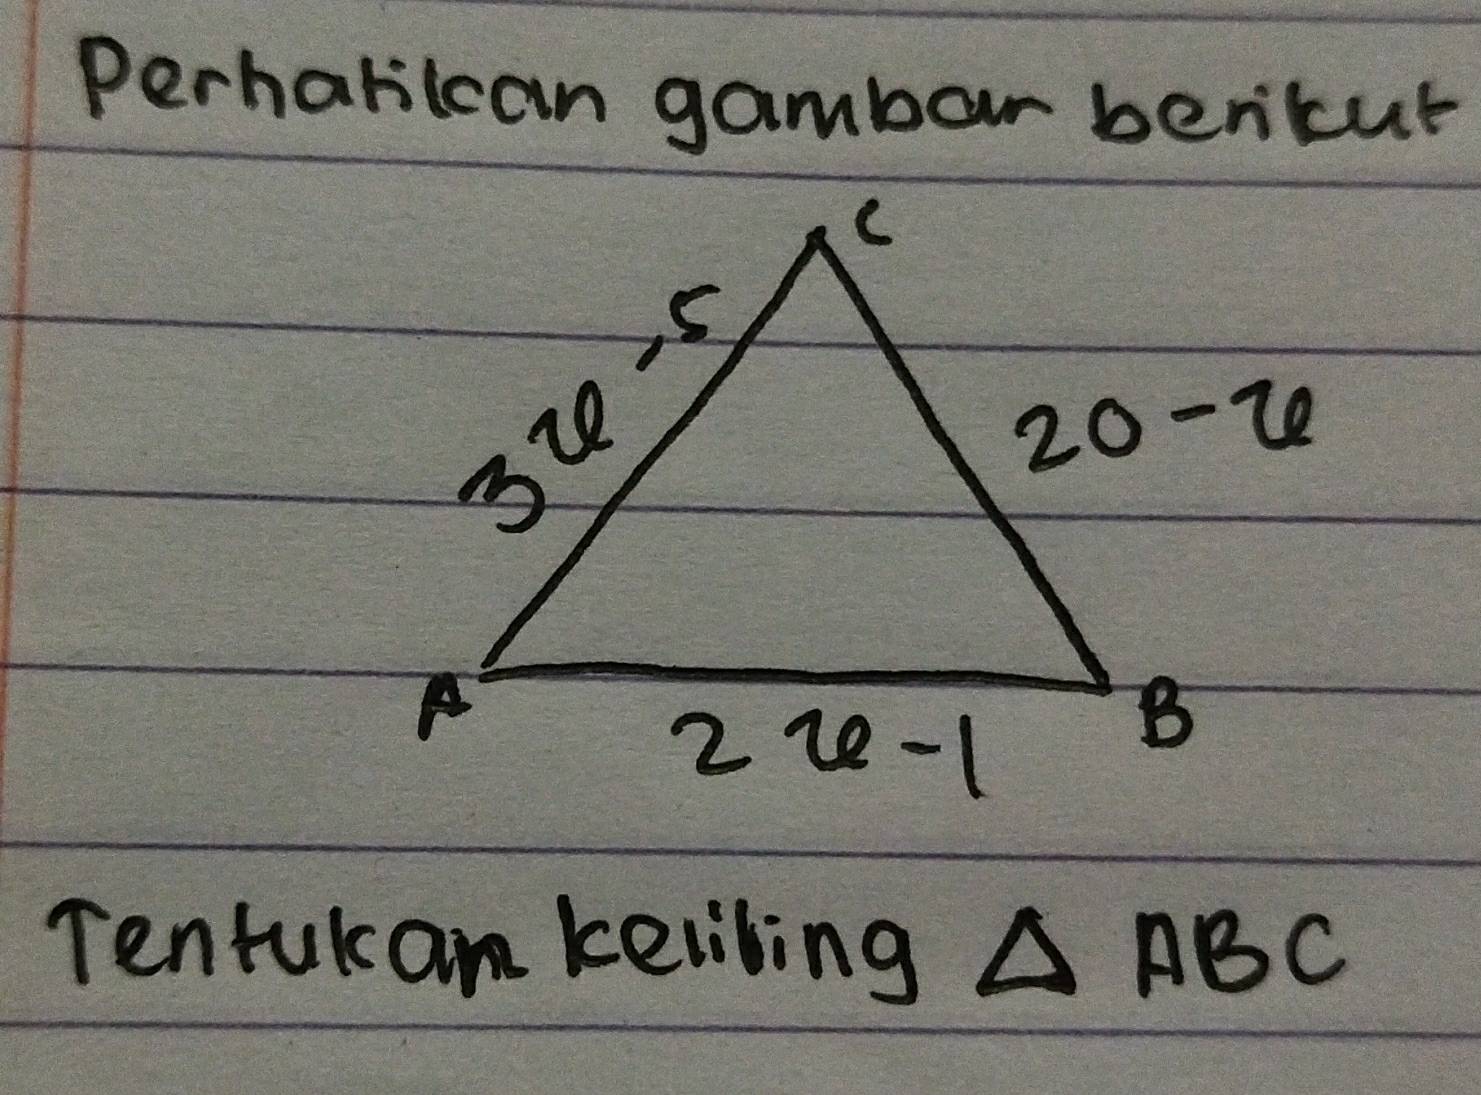 Perhatikan gambar berikut
C
3x - 5
20 - x
A
B
2x - 1
Tentukan keliling Δ ABC